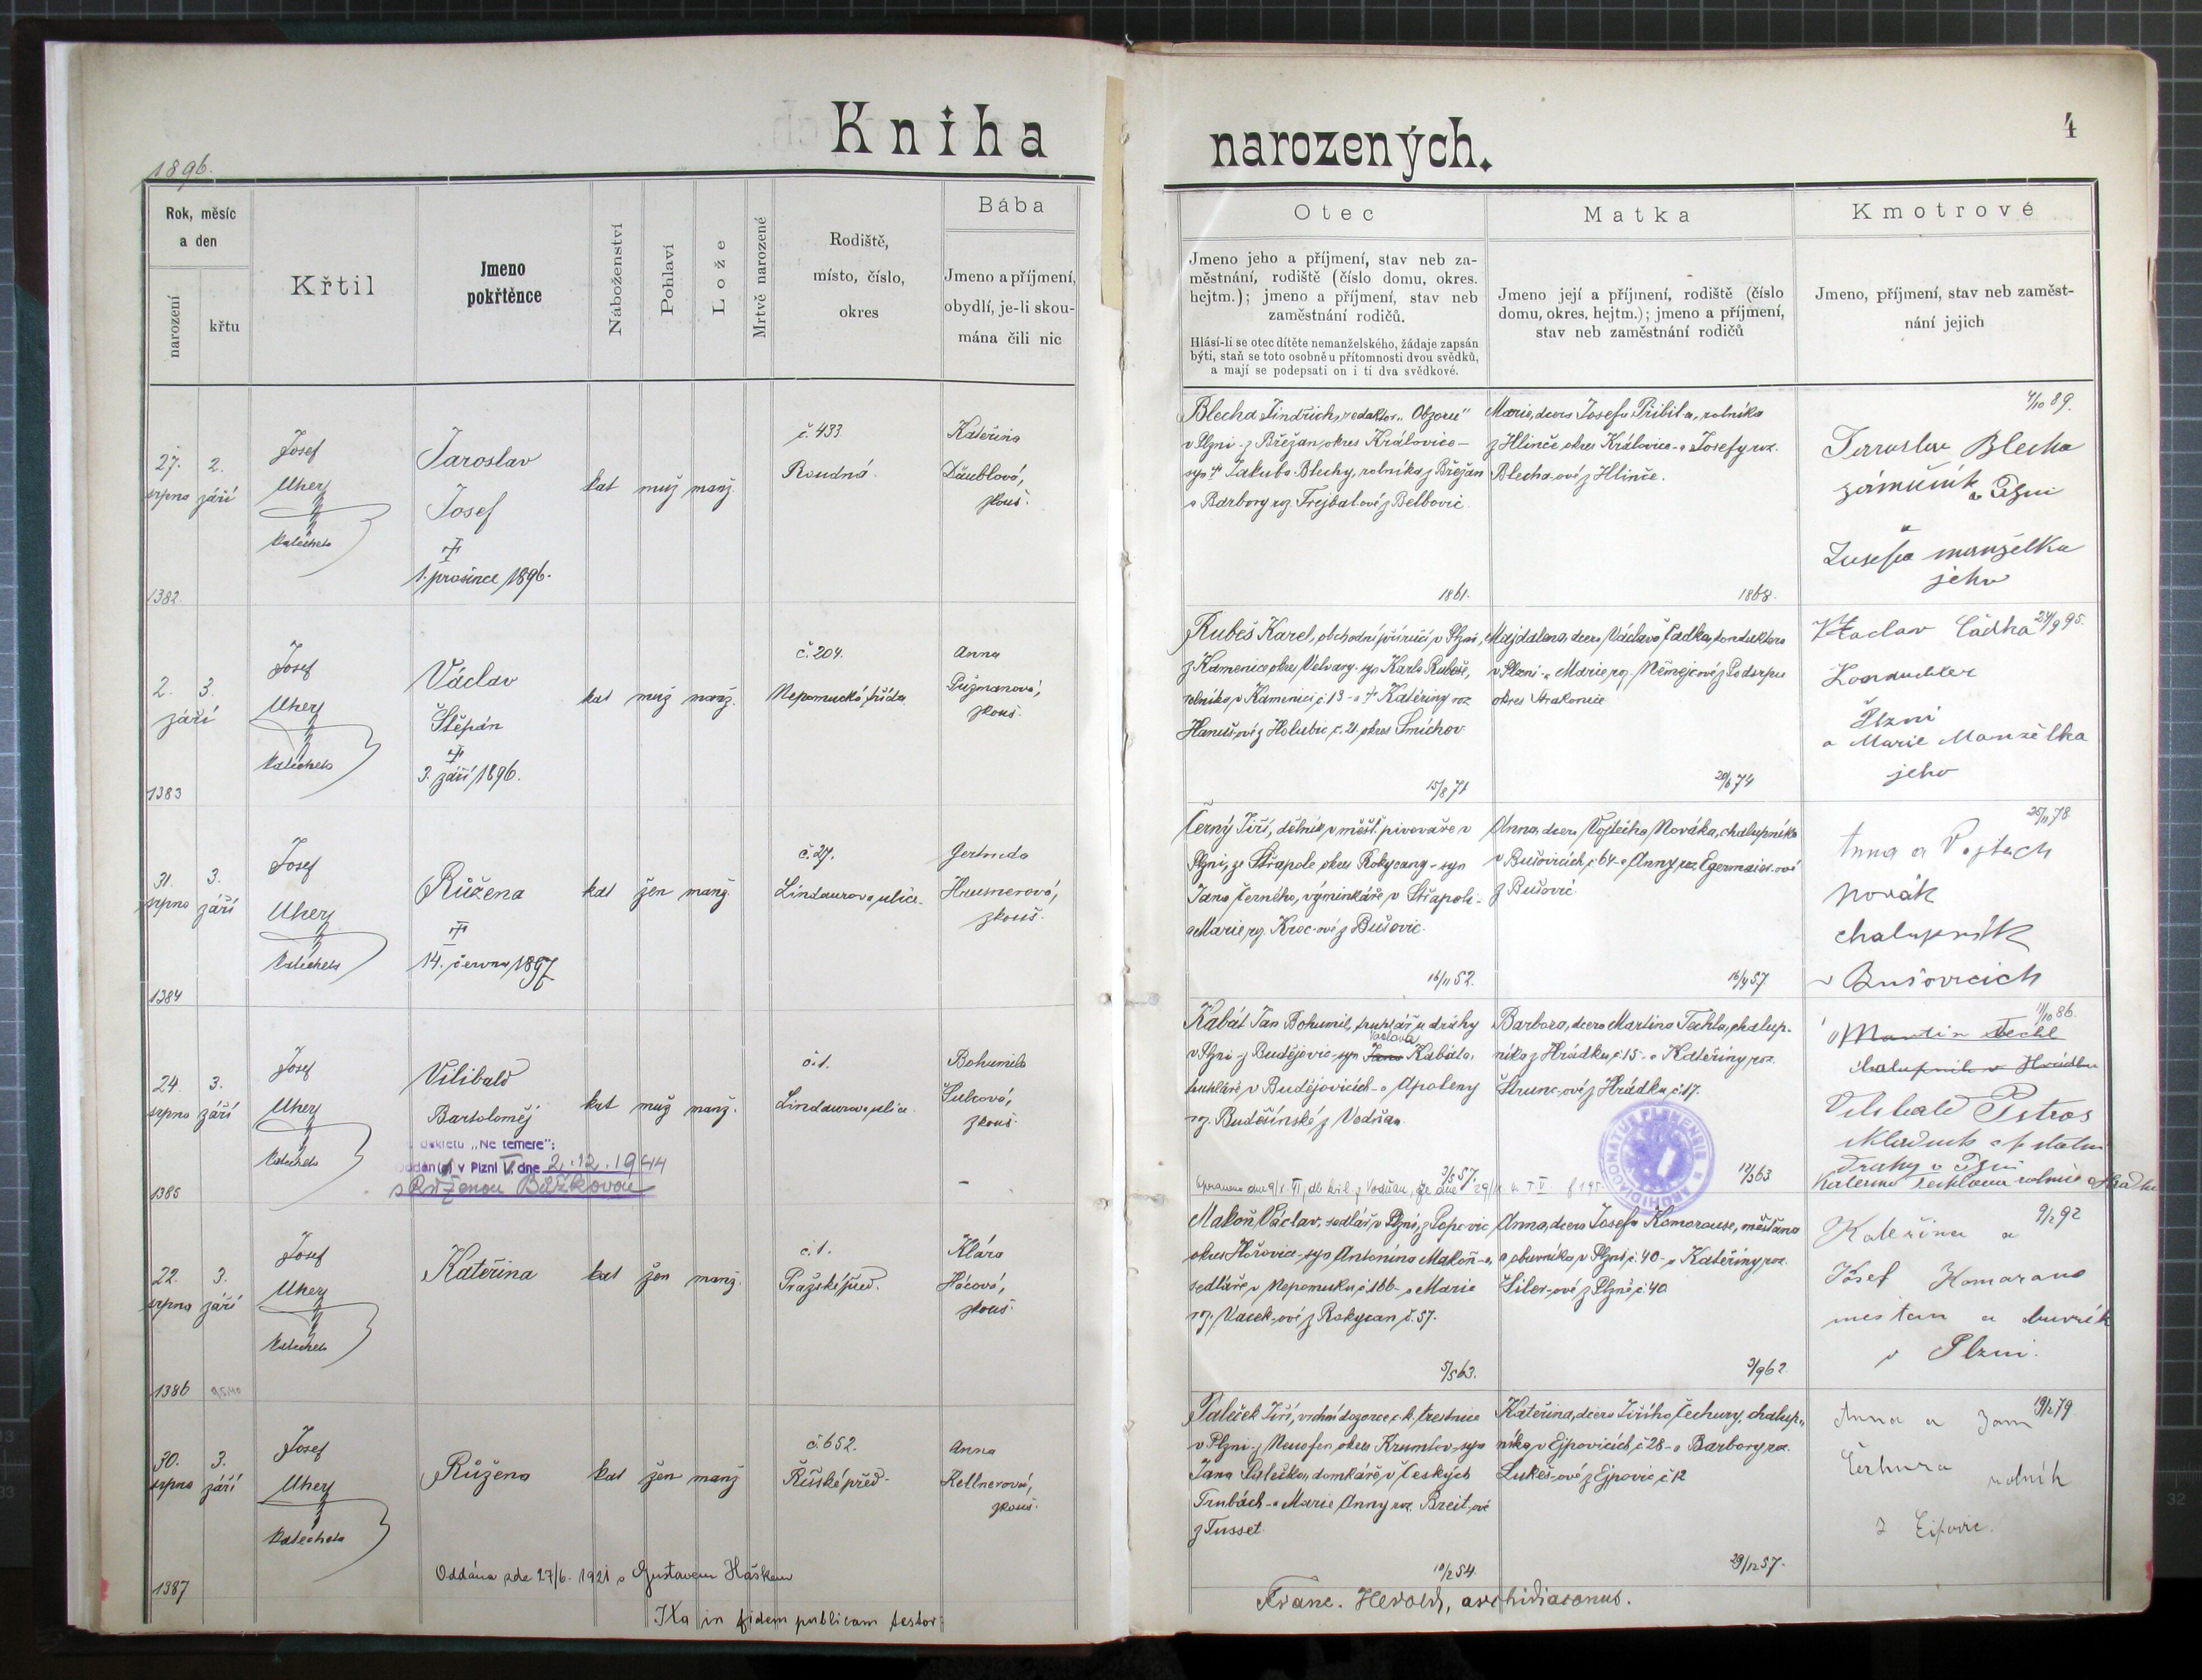 Kniha
narozených.
4
1896.
Rok, měsíc
a den
narození
křtu
Křtil
Jmeno
pokřtěnce
Náboženství
Pohlaví
Lože
Mrtvě narozené
Rodiště,
místo, číslo,
okres
Bába
Jmeno a příjmení,
obydlí, je-li skou-
mána čili nic
Otec
Jmeno jeho a příjmení, stav neb za-
městnání, rodiště (číslo domu, okres.
hejtm.); jmeno a příjmení, stav neb
zaměstnání rodičů.
Hlásí-li se otec dítěte nemanželského, žádaje zapsán
býti, staň se toto osobně u přítomnosti dvou svědků,
a mají se podepsati on i ti dva svědkové.
Matka
Jmeno její a příjmení, rodiště (číslo
domu, okres. hejtm.); jmeno a příjmení,
stav neb zaměstnání rodičů
Kmotrové
Jmeno, příjmení, stav neb zaměst-
nání jejich
27. srpna
2. září
Josef
Uhery
katecheta
Jaroslav
Josef
1. prosince 1896.
kat muž manž.
č. 433.
Roudná.
Kateřina
Däublová,
zkouš.
Blecha Jindřich, redaktor "Obzoru"
v Plzni z Břežan, okres Kralovice -
syn † Jakuba Blechy, rolníka z Břežan
a Barbory roz. Frejbalové z Belbovic.
1861.
Marie, dcera Josefa Přibila, rolníka
z Hlince okres Kralovice - a Josefy roz.
Blecha-ové z Hlince.
1868.
4/10 89.
Jaroslav Blecha
zámečník v Plzni
Josefa manželka
jeho
1382
2. září
3.
Josef
Uhery
katecheta
Václav
Štěpán
3. září 1896.
kat muž manž.
č. 204.
Nepomucká třída.
Anna
Pužmanová,
zkouš.
Rubeš Karel, obchodní příručí v Plzni,
z Kamenice okres Velvary - syn Karla Rubeše,
rolníka v Kamenici č. 13 - a † Kateřiny roz.
Hanuš-ové z Holubic č. 21 okres Smíchov.
15/8 71
Majdalena, dcera Václava Čadka, konduktora
v Plzni - a Marie roz. Němejcové z Podsrpu
okres Strakonice
20/6 74
24/9 95.
Václav Čadka
Konduktér
Plzni
a Marie Manželka
jeho
1383
31. srpna
3. září
Josef
Uhery
katecheta
Růžena
14. června 1897
kat žen manž.
č. 27.
Lindaurova ulice.
Gertruda
Hausnerová,
zkouš.
Černý Jiří, dělník v měšť. pivováře v
Plzni, ze Střapole okres Rokycany - syn
Jana Černého, výminkáře v Střapoli -
a Marie roz. Kroc-ové z Bušovic.
16/11 52.
Anna, dcera Vojtěcha Nováka, chalupníka
v Bušovicích č. 64 - a Anny roz. Egermaier-ové
z Bušovic.
16/4 57
25/11 78
Anna a Vojtěch
Novák
chalupník
v Bušovicích
1384
24. srpna
3. září
Josef
Uhery
katecheta
Vilibald
Bartoloměj
dekretu „Ne temere":
oddán(a) v Plzni V. dne 2.12.1944
s Růženou Bůžkovou
kat muž manž.
č. 1.
Lindaurova ulice.
Bohumila
Šulcová,
zkouš.
Kabát Jan Bohumil, truhlář u dráhy
Václava
v Plzni z Budějovic - syn Jana Kabáta,
truhláře v Budějovicích - a Apoleny
roz. Buděšínské z Vodňan.
3/5 57.
Barbora, dcera Martina Techla, chalup-
níka z Hrádku č. 15 - a Kateřiny roz.
Strunc-ové z Hrádku č. 17.
12/5 63
11/10 86.
Martin Techl
chalupník v Hrádku
Vilibald Pstros
dráhy v Plzni
1385
22. srpna
3. září
Josef
Uhery
katecheta
Kateřina
kat žen manž.
č. 1.
Pražské před.
Klára
Hácová,
zkouš.
Makoň Václav, sedlář v Plzni, z Popovic
okres Hořovice - syn Antonína Makoň-a,
sedláře v Nepomuku č. 186 - a Marie
roz. Vacek-ové z Rokycan č. 57.
5/5 63.
Anna, dcera Josefa Komorause, měšťana
a obuvníka v Plzni č. 40 - a Kateřiny roz.
Šiler-ové z Plzně č. 40
3/9 62
9/2 92
Kateřina a
Josef Komaraus
mestan a obuvník
v Plzni.
1386
30. srpna
3. září
Josef
Uhery
katecheta
Růžena
kat žen manž
č. 652.
Říšské před-
Anna
Kellnerová,
zkouš.
Paleček Jiří, vrchní dozorce c. k. trestnice
v Plzni z Neuofen okres Krumlov - syn
Jana Palečka, domkáře v Českých
Trubách - a Marie Anny roz. Breit-ové
z Tusset.
10/2 54.
Kateřina, dcera Jiřího Čechury, chalup-
níka v Ejpovicích č. 28 - a Barbory roz.
Lukeš-ové z Ejpovic č. 12
29/12 57.
19/2 79.
Anna a Jan
Čechura rolník
z Eipovic.
1387
Oddána zde 27/6. 1921 s Gustavem Haškem
Ita in fidem publicam testor:
Franc. Herold, archidiaconus.